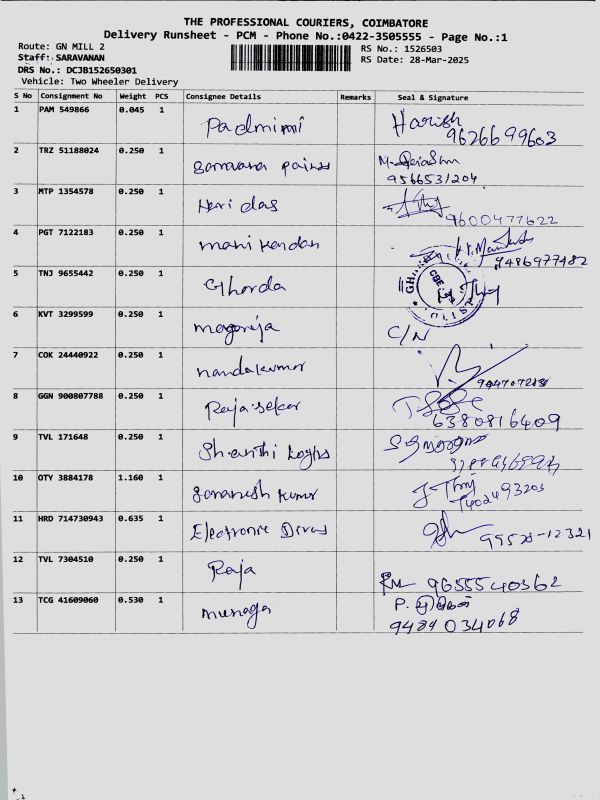 THE PROFESSIONAL COURIERS, COIMBATORE
Delivery Runsheet - PCM - Phone No.:0422-3505555 - Page No.:1
Route: GN MILL 2
RS No.: 1526503
Staff: SARAVANAN
RS Date: 28-Mar-2025
DRS No.: DCJB152650301
Vehicle: Two Wheeler Delivery
S No Consignment No Weight PCS Consignee Details Remarks Seal & Signature
1 PAM 549866 0.045 1 Padmini Harish
9626699603
2 TRZ 51188024 0.250 1
9566531204
3 MTP 1354578 0.250 1 Hari das
9600477622
4 PGT 7122183 0.250 1 mani kandan
9486977482
5 TNJ 9655442 0.250 1 Ghorda
6 KVT 3299599 0.250 1 C/N
7 COK 24440922 0.250 1 nandakumar
8 GGN 900807788 0.250 1 Raja sekar
6380816409
9 TVL 171648 0.250 1 Shanthi
10 OTY 3884178 1.160 1 kumar
7402493203
11 HRD 714730943 0.635 1 Electronic
99523-12321
12 TVL 7304510 0.250 1 Raja
9655540362
13 TCG 41609060 0.530 1 P.
9489034068